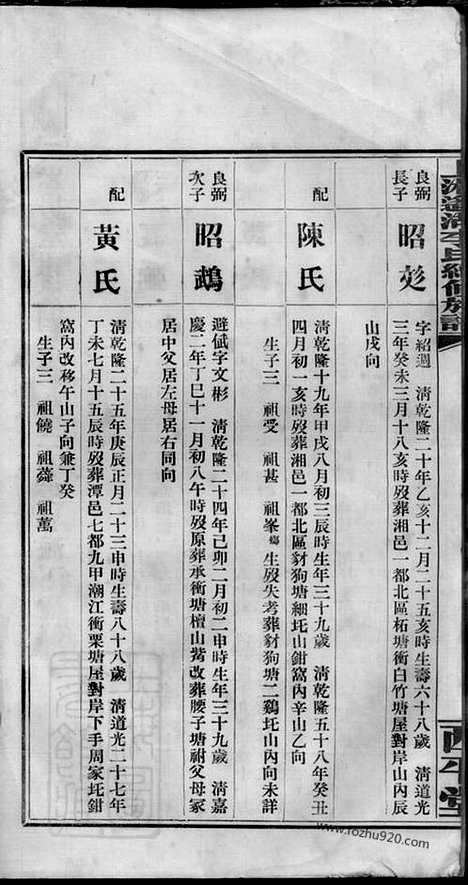 李氏續修族譜
良弼
長子
昭彣
字紹迴 清乾隆二十年乙亥十二月二十五亥時生壽六十八歲 清道光
三年癸未三月十八亥時歿葬湘邑一都北區柘塘衝白竹塘屋對岸山內辰
山戌向
配
陳氏
清乾隆十九年甲戌八月初三辰時生年三十九歲 清乾隆五十八年癸丑
四月初一亥時歿葬湘邑一都北區豺狗塘細圫山鉗窩內辛山乙向
生子三 祖受 祖甚 祖峯 生歿失考葬豺狗塘二鷄圫山內向未詳
良弼
次子
昭鵡
避弒字文彬 清乾隆二十四年己卯二月初二申時生年三十九歲 清嘉
慶二年丁巳十一月初八午時歿原葬承衝塘檀山觜改葬腰子塘祔父母冢
居中父居左母居右同向
配
黃氏
清乾隆二十五年庚辰正月二十三申時生壽八十八歲 清道光二十七年
丁未七月十五辰時歿葬潭邑七都九甲潮江衝栗塘屋對岸下手周家圫鉗
窩內改移午山子向兼丁癸
生子三 祖饒 祖蕣 祖萬
西平堂
www.rozhu920.com